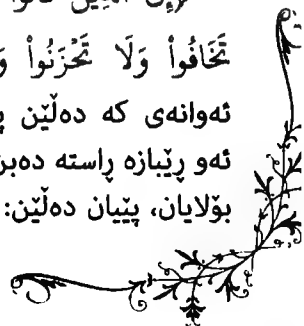 تَخَافُوا۟ وَلَا تَحْزَنُوا۟
ئەوانەی کە دەڵێن
ئەو ڕێبازە ڕاستە
بۆلایان، پێیان دەڵێن: